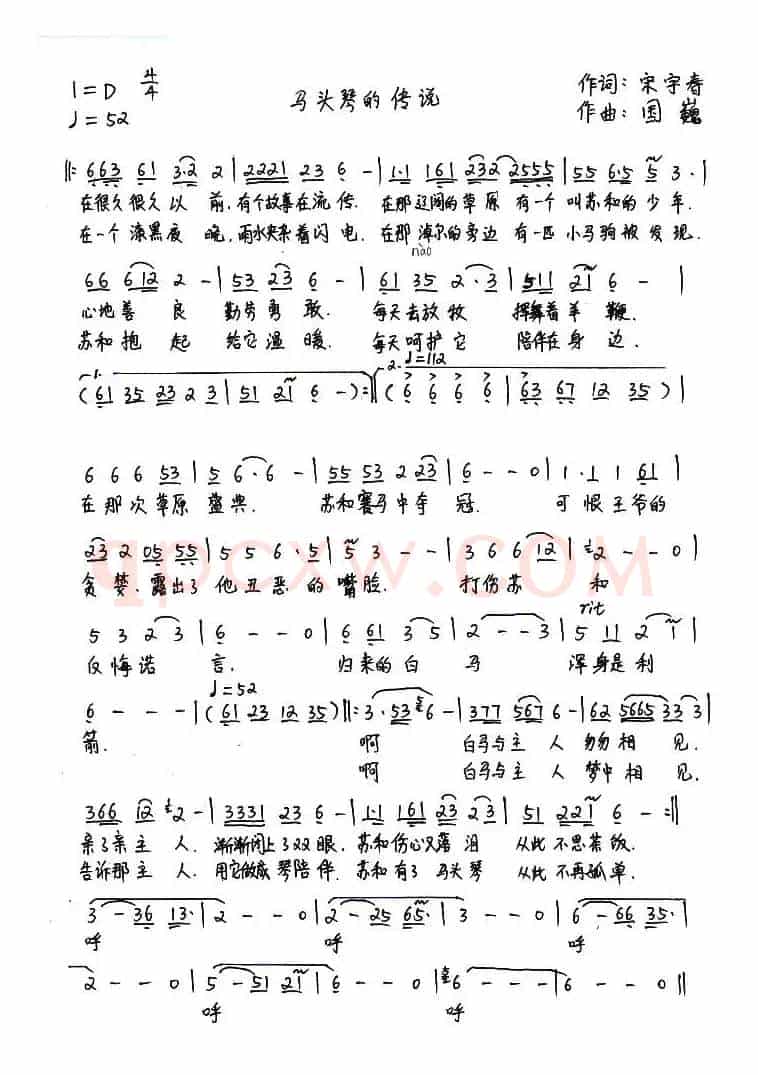 1=D 4/4 马头琴的传说 作词:宋宇春
♩=52 作曲:国巍
‖: 663 61 3·2 2 | 2221 23 6 - | 1·1 161 232 2555 | 55 6·5 5 3· |
在很久很久以前,有个故事在流传. 在那辽阔的草原 有一个叫苏和的少年.
在一个漆黑夜晚,雨水夹杂着闪电. 在那淖尔的旁边 有一匹小马驹被发现.
nào
66 612 2 - | 53 23 6 - | 61 35 2·3 | 511 21 6 - |
心地善良 勤劳勇敢. 每天去放牧 挥舞着羊鞭.
苏和抱起 给它温暖. 每天呵护它 陪伴在身边.
1. 2. ♩=112
(61 35 23 2 3 | 51 21 6 -):‖ (6 6 6 6 | 63 67 12 35) |
6 6 6 53 | 5 6·6 - | 55 53 2 23 | 6 - - 0 | 1·1 1 61 |
在那次草原盛典. 苏和赛马中夺冠. 可恨王爷的
23 2 05 55 | 5 5 6·5 | 5 3 - - | 3 6 6 12 | 2 - - 0 |
贪婪.露出了他丑恶的嘴脸. 打伤苏和
rit
5 3 2 3 | 6 - - 0 | 6 61 3 5 | 2 - - 3 | 5 11 2 1 |
反悔诺言. 归来的白马 浑身是利
♩=52
6 - - - | (61 23 12 35) ‖: 3·53 6 - | 377 567 6 - | 62 5665 33 3 |
箭. 啊 白马与主人匆匆相见.
啊 白马与主人梦中相见.
366 12 2 - | 3331 23 6 - | 1·1 161 23 2 3 | 51 221 6 - :‖
亲了亲主人. 渐渐闭上了双眼.苏和伤心又落泪 从此不思茶饭.
告诉那主人.用它做成琴陪伴.苏和有了马头琴 从此不再孤单.
3 - 36 13· | 2 - - 0 | 2 - 25 65· | 3 - - 0 | 6 - 66 35· |
呼 呼 呼
2 - - 0 | 5 - 51 21 | 6 - - 0 | 6 - - - | 6 - - 0 ‖
呼 呼
qpcxw.COM